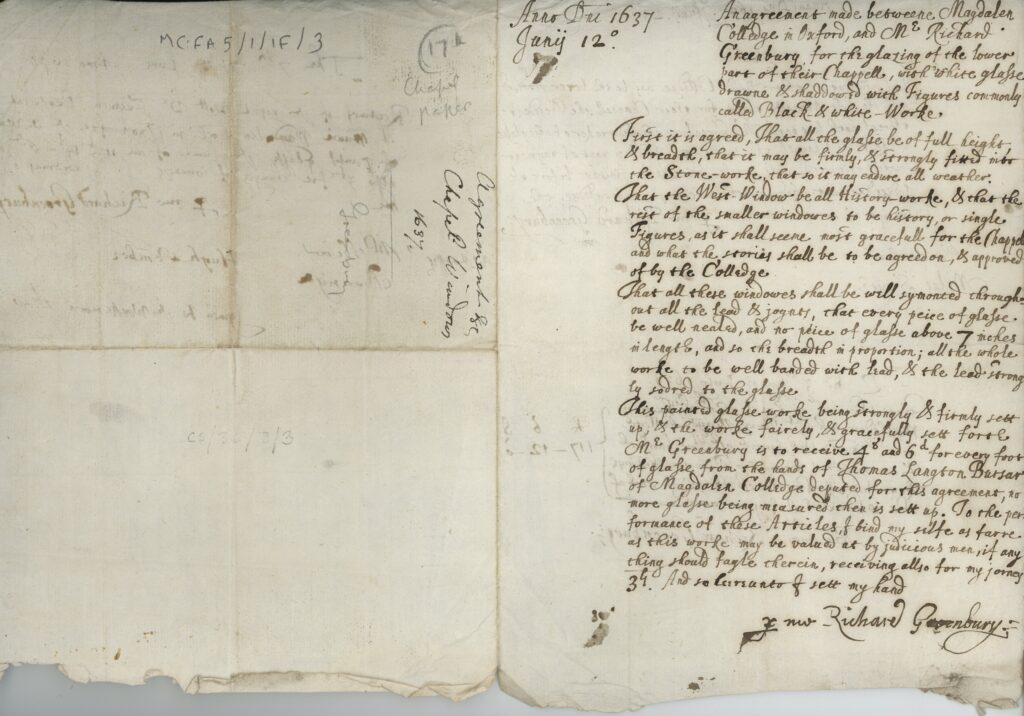 MC:FA5/1/1F/3
17
Chapel
paper
Agreement &c
Chapel Windows
1637.
Richard Greenbury
CS/36/3/3
Anno Dni 1637
Junij 12º
An agreement made betweene Magdalen
Colledge in Oxford, and Mr Richard
Greenbury for the glazing of the lower
part of their Chappell, with white glasse
drawne & shaddowed with Figures commonly
called Black & white-Worke
First it is agreed, That all the glasse be of full height,
& breadth, that it may be firmly, & strongly fitted into
the Stone-worke, that so it may endure all weather.
That the West Window be all History-worke, & that the
rest of the smaller windowes to be history, or single
Figures, as it shall seeme most gracefull for the Chappell
and what the stories shall be to be agreed on, & approved
of by the Colledge
That all these windowes shall be well symonted through
out all the lead & joynts, that every peice of glasse
be well nealed, and no peice of glasse above 7 inches
in length, and so the breadth in proportion; all the whole
worke to be well banded with lead, & the lead strong
ly sodred to the glasse
This painted glasse worke being strongly & firmly sett
up, & the worke fairely, & gracefully sett forth
Mr Greenbury is to receive 4s and 6d for every foot
of glasse from the hands of Thomas Langton Bursar
of Magdalen Colledge deputed for this agreement, no
more glasse being measured then is sett up. To the per
formance of these Articles I bind my selfe as farre
as this worke may be valued at by judicious men, if any
thing should fayle therein, receiving allso for my jorney
3li. And so hereunto I sett my hand
p me Richard Greenbury